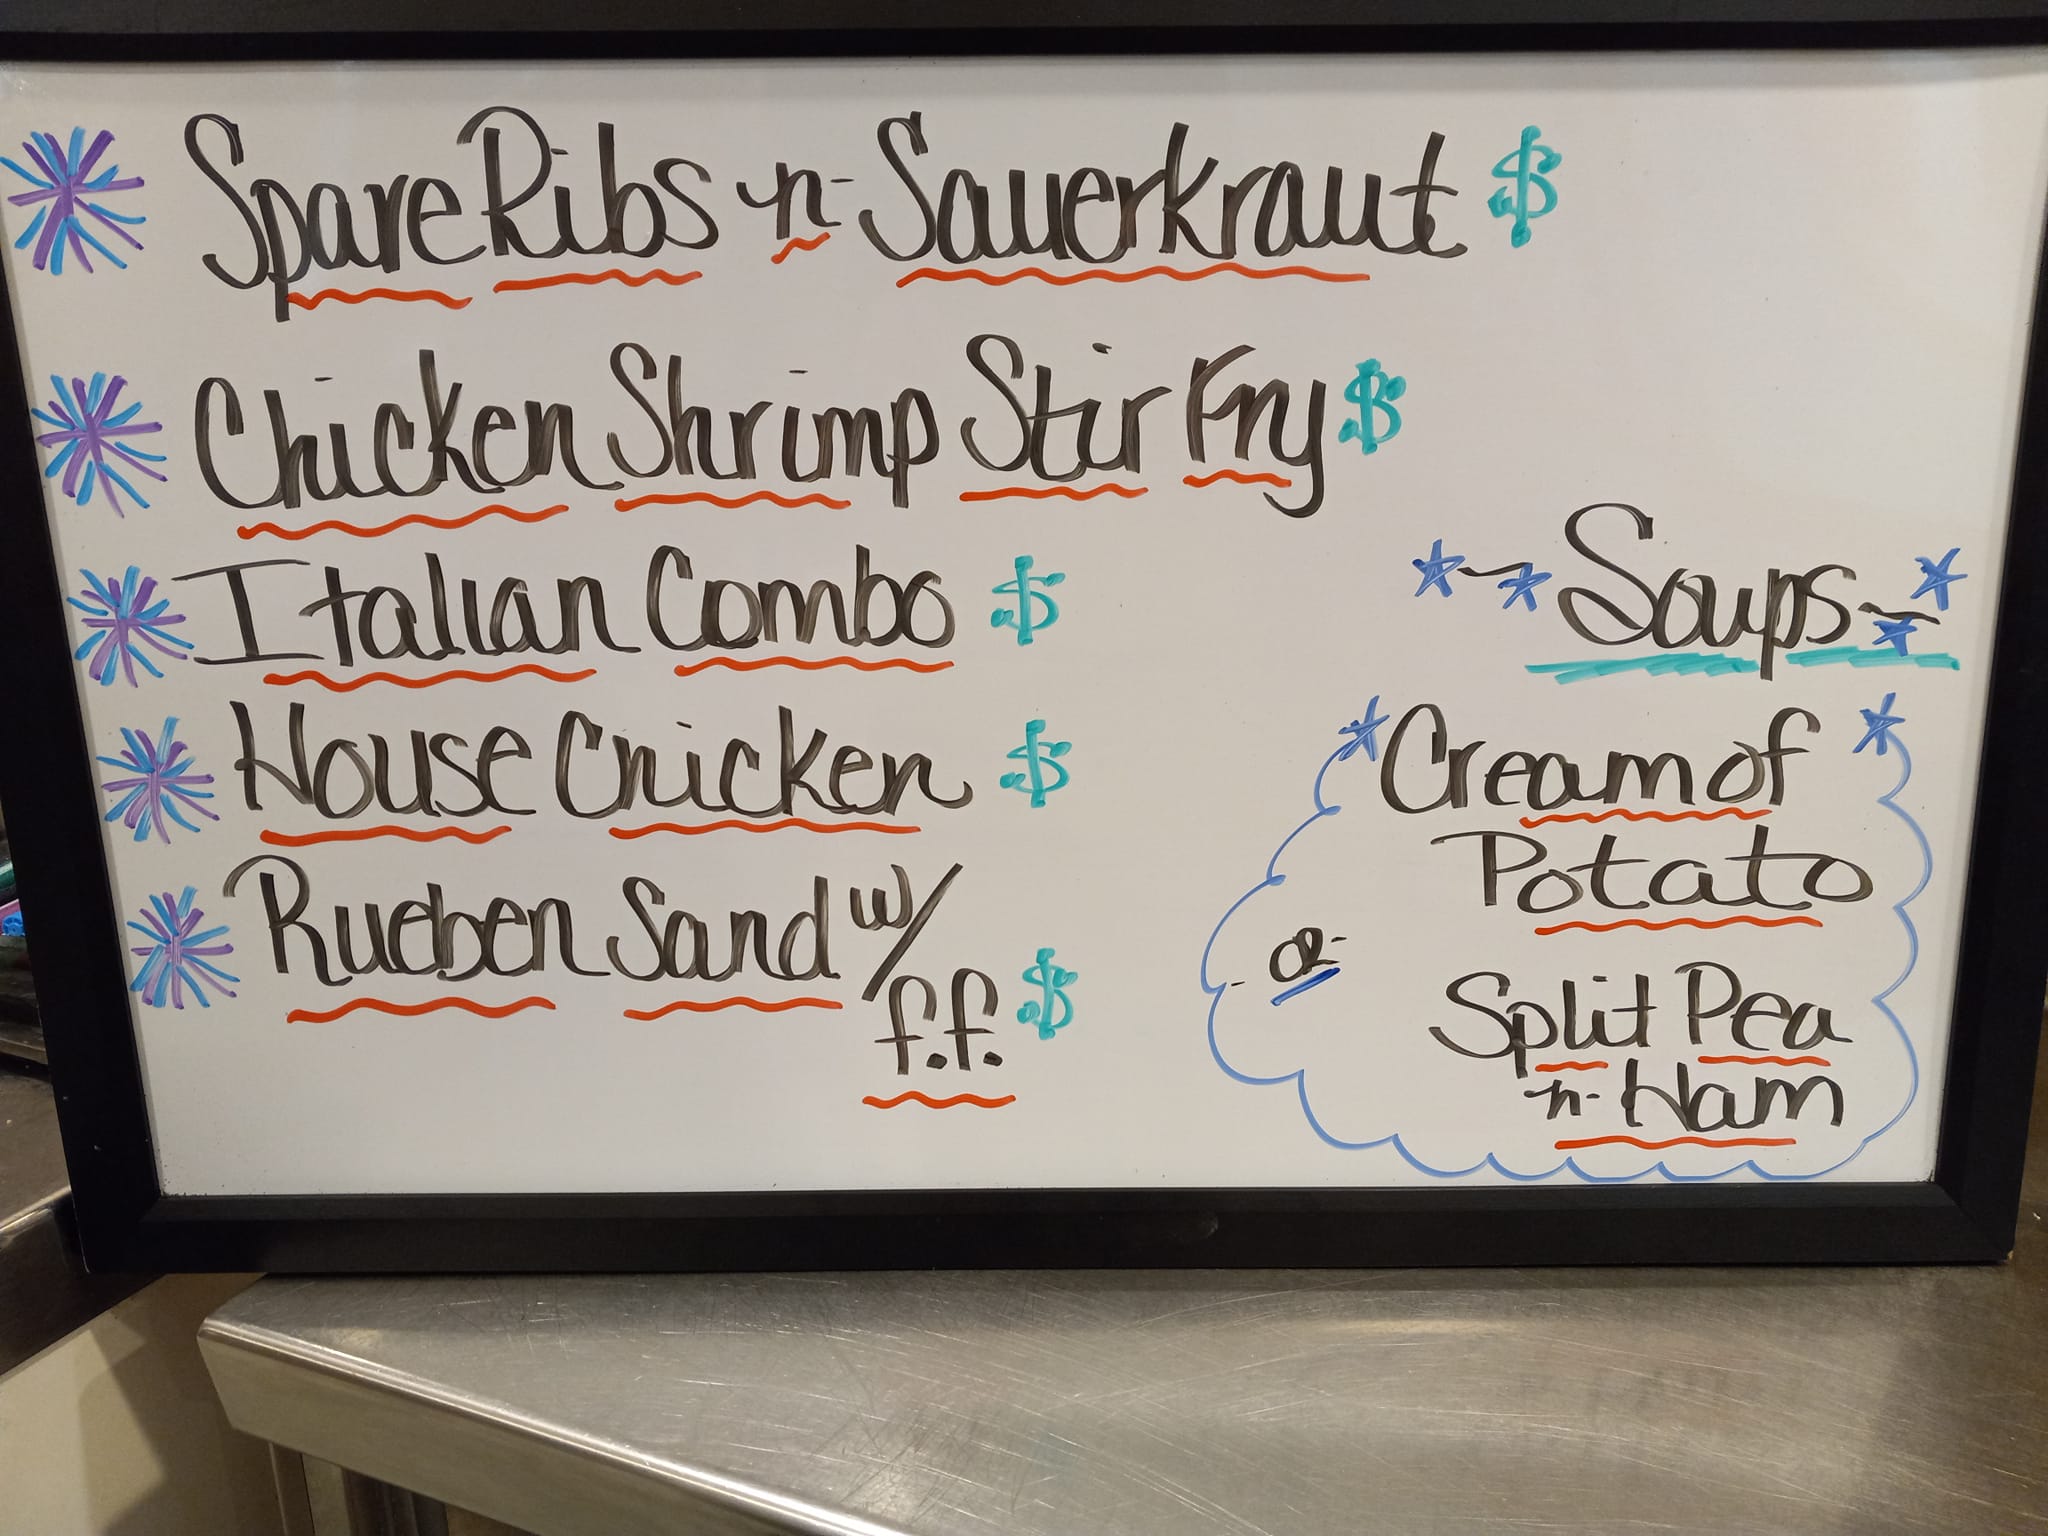 Spare Ribs -n- Sauerkraut $
Chicken Shrimp Stir Fry $
Italian Combo $
House Chicken $
Rueben Sand w/
f.f. $
~Soups~
Cream of
Potato
-or-
Split Pea
-n- Ham